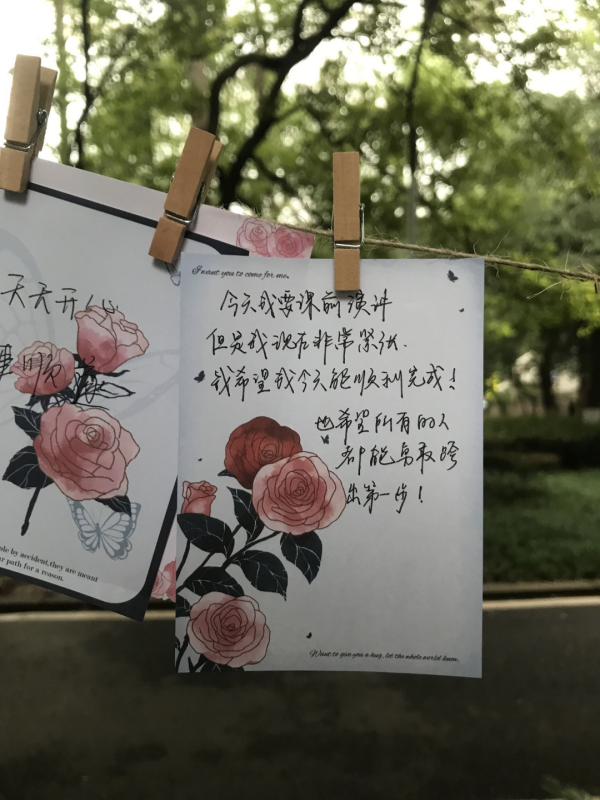 天天开心
事顺
ple by accident,they are meant
r path for a reason.
I want you to come for me.
今天我要课前演讲
但是我现在非常紧张.
我希望我今天能顺利完成！
也希望所有的人
都能勇敢跨
出第一步！
Want to give you a hug, let the whole world know.